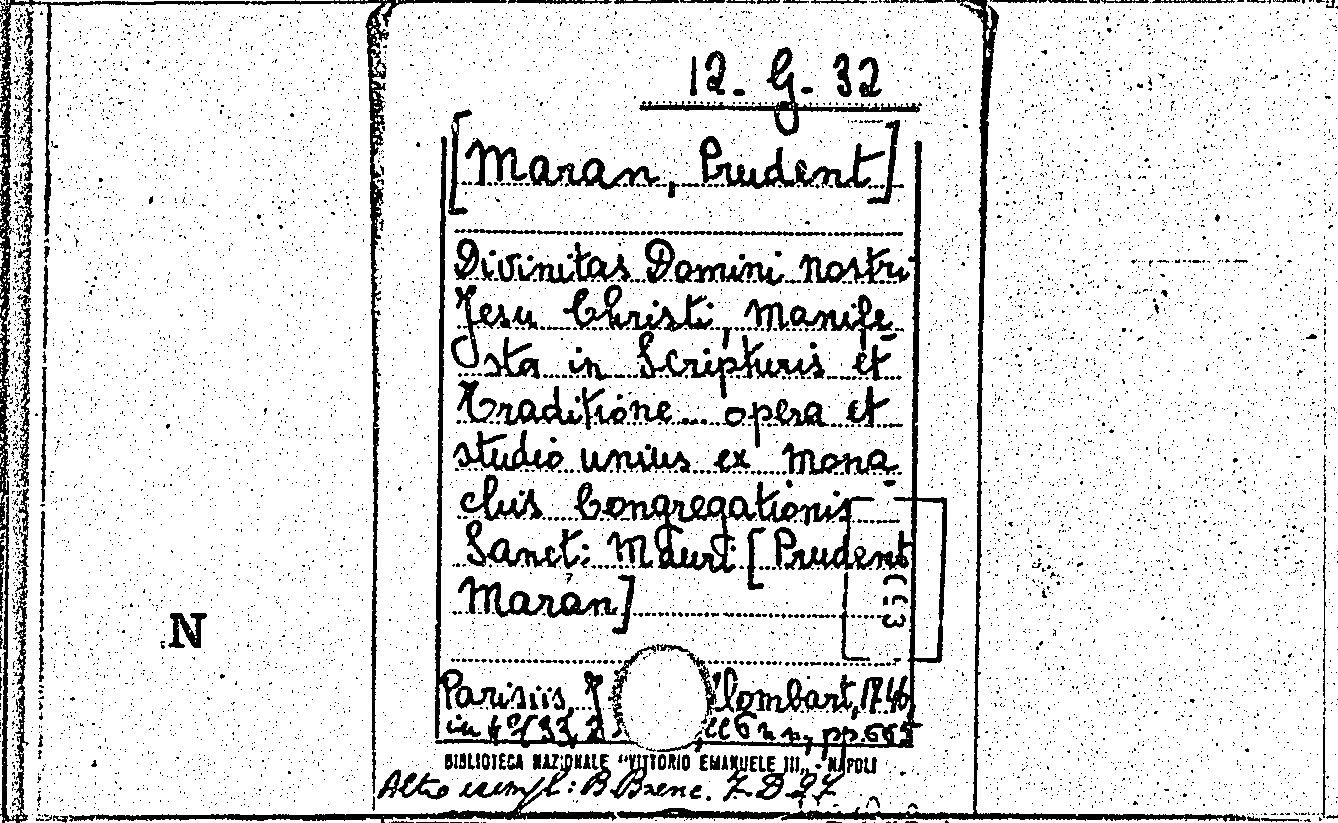 12. G. 32
[Maran, Prudent]
Divinitas Domini nostri
Jesu Christi, manife-
sta in Scripturis et
Traditione... opera et
studio unius ex mona-
chis Congregationis
Sancti Mauri [Prudent
Maran]
N
Parisiis, J lombart, 1746
in pp. 662
BIBLIOTECA NAZIONALE "VITTORIO EMANUELE III„ - NAPOLI
Altro esempl: B. Branc. 7. D 27